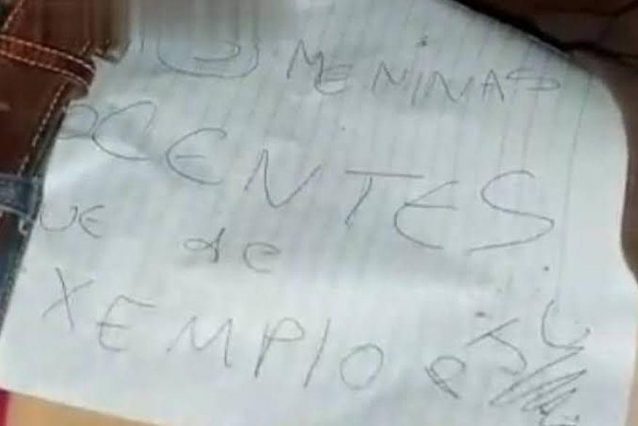 MENINAS
CENTES
UE de
XEMPLO